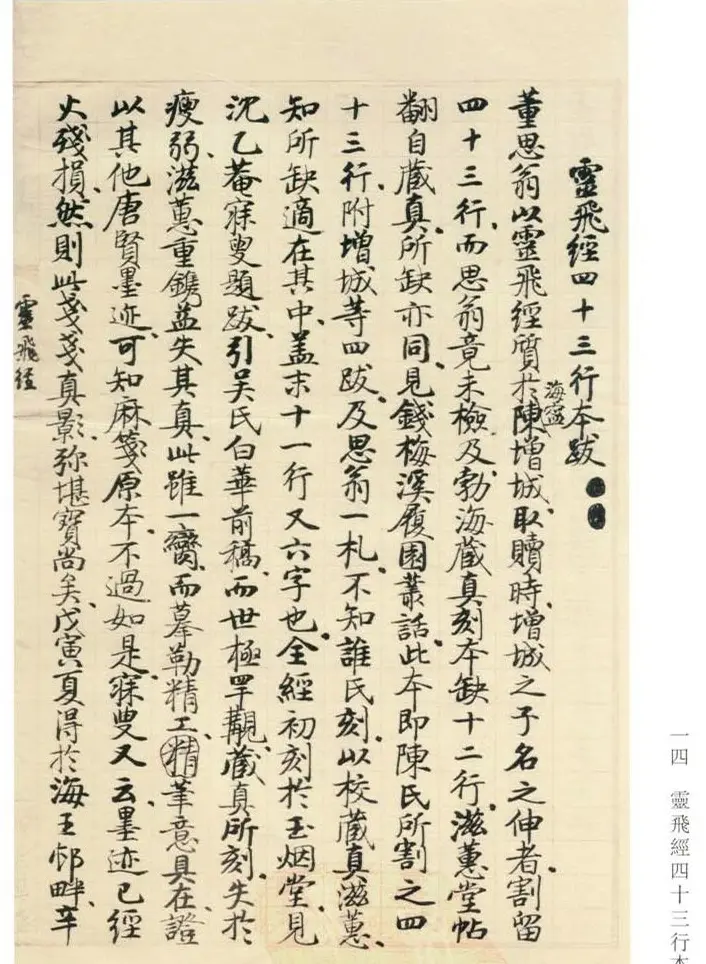 靈飛經四十三行本跋
董思翁以靈飛經質於海寧陳增城、取贖時、增城之子名之伸者、割留
四十三行、而思翁竟未檢及、勃海藏真刻本缺十二行、滋蕙堂帖
翻自藏真、所缺亦同、見錢梅溪履園叢話、此本即陳氏所割之四
十三行、附增城等四跋、及思翁一札、不知誰氏刻、以校藏真滋蕙、
知所缺適在其中、盖末十一行又六字也、全經初刻於玉烟堂、見
沈乙菴寐叟題跋、引吳氏白華前稿、而世極罕覯、藏真所刻、失於
瘦弱、滋蕙重鐫、益失其真、此雖一臠、而摹勒精工、精筆意具在、證
以其他唐賢墨迹、可知麻箋原本、不過如是、寐叟又云、墨迹已經
火殘損、然則此戔戔真影、弥堪寶尚矣、戊寅夏得於海王邨畔、辛
靈飛經
一四　靈飛經四十三行本